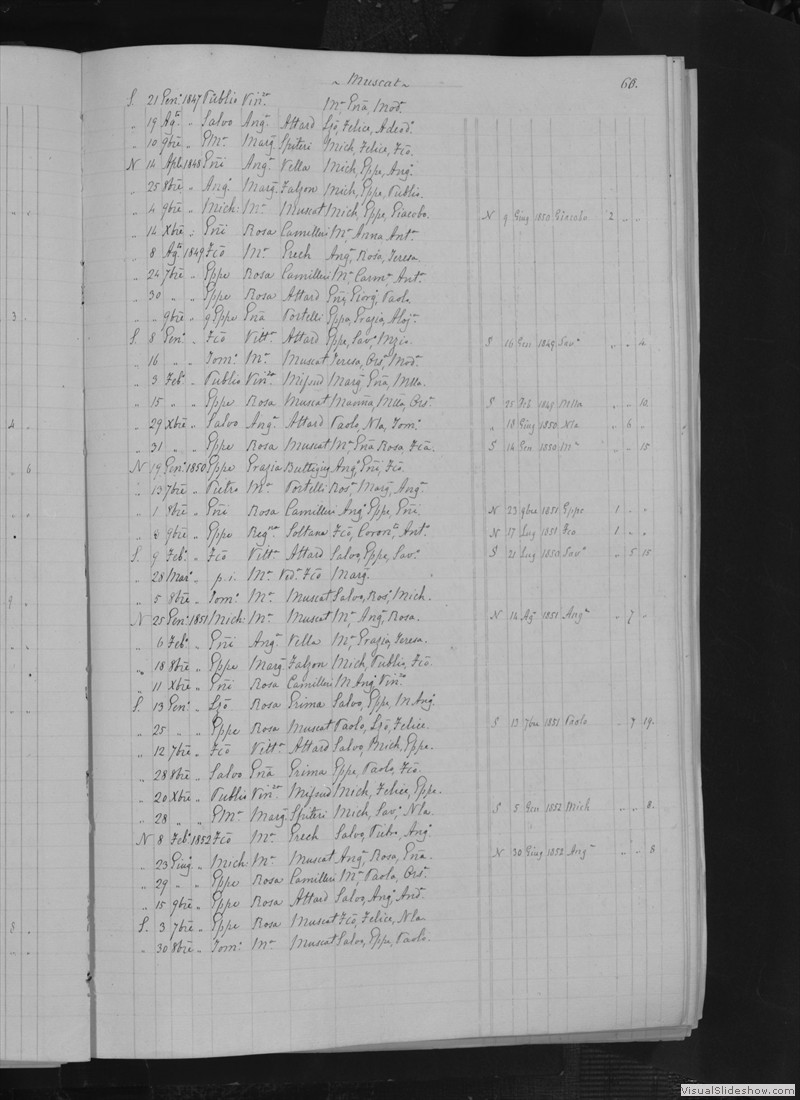 ~ Muscat ~ 60.
S. 21 Gen.º 1847 Publio Vin.ᶻᵃ Mª Gña, Mod.ª
„ 19 Agº „ Salvo Ang.ª Attard Ljò, Felice, Adeod.ª
„ 10 9bre „ Mª Marg. Spiteri Mich, Felice, Fcò.
N 14 Aple 1848 Gñi Ang.ª Vella Mich, Eppe, Ang.º
„ 25 8bre „ Ang.º Marg. Falzon Mich, Eppe, Publio.
„ 4 9bre „ Mich. Mª Muscat Mich, Eppe, Giacobo. N 9 Giug 1850 Giacobo 2 „ „
„ 14 Xbre „ Gñi Rosa Camilleri Mª Anna Ant.ª
„ 8 Agº 1849 Fcò Mª Grech Ang.ª, Rosa, Teresa.
„ 24 7bre „ Eppe Rosa Camilleri Mª Carm.ª Ant.ª
„ 30 „ „ Eppe Rosa Attard Gña, Giorg.ª, Paola.
„ „ 9bre „ Eppe Gña Portelli Eppa, Grazia, Aloj.ª
S. 8 Gen.º „ Fcò Vitt.ª Attard Eppe, Sav.º S 16 Gen 1849 Sav.º
„ 16 „ „ Tom.º Mª Muscat Teresa, Ors.ª Mod.ª
„ 3 Feb.º „ Publio Vin.ᶻᵃ Mifsud Marg. Gña, Mlla.
„ 15 „ „ Eppe Rosa Muscat Marina, Mlla, Ors.ª S 25 Feb 1849 Mlla „ „ 10
„ 29 Xbre „ Salvo Ang.ª Attard Paolo, Nla, Tom.º „ 18 Giug 1850 Nla „ 6 „
„ 31 „ „ Eppe Rosa Muscat Mª Gña Rosa Fca. S 14 Gen 1850 Mª „ „ 15
N 19 Gen.º 1850 Eppe Grazia Buttigieg Ang.º Gñi, Fcò.
„ 13 7bre „ Pietro Mª Portelli Ros.ª Marg. Ang.ª
„ 1 8bre „ Gñi Rosa Camilleri Ang.º Eppe, Gñi. N 23 9bre 1851 Eppe 1 „ „
„ 8 9bre „ Eppe Reg.ⁿᵃ Soltana Fcò, Ant.º N 17 Lug 1851 Fcò 1 „ „
S. 9 Feb.º „ Fcò Vitt.ª Attard Salvo, Eppe, Sav.º S 21 Lug 1850 Sav.º „ 5 15
„ 28 Mar.º „ p. i. Mª Ved.ª Fcò Marg.
„ 5 8bre „ Tom.º Mª Muscat Salvo, Ros.º, Mich.
N 25 Gen.º 1851 Mich. Mª Muscat Mª, Ang.ª, Rosa. N 14 Agº 1851 Ang.ª „ 7 „
„ 6 Feb.º „ Gñi Ang.ª Vella Mª, Grazia, Teresa.
„ 18 8bre „ Eppe Marg. Falzon Mich, Publio, Fcò.
„ 11 Xbre „ Gñi Rosa Camilleri M Ang.ª Vin.ᶻᵃ
S. 13 Gen.º „ Ljò Rosa Grima Salvo, Eppe, M Ang.º
„ 25 „ „ Eppe Rosa Muscat Paolo, Ljò, Felice. S 13 7bre 1851 Paolo „ 7 19.
„ 12 7bre „ Fcò Vitt.ª Attard Salvo, Mich, Eppe.
„ 28 8bre „ Salvo Gña Grima Eppe, Paolo, Fcò.
„ 20 Xbre „ Publio Vin.ᶻᵃ Mifsud Mich, Felice, Eppe.
„ 28 „ „ Mª Marg. Spiteri Mich, Sav.º, Nla. S 5 Gen 1852 Mich „ „ 8.
N 8 Feb.º 1852 Fcò Mª Grech Salvo, Pietro, Ang.º
„ 23 Giug.º „ Mich. Mª Muscat Ang.ª, Rosa, Gña. N 30 Giug 1852 Ang.ª „ „ 8
„ 29 „ „ Eppe Rosa Camilleri Mª, Paola, Ors.ª
„ 15 9bre „ Eppe Rosa Attard Salvo, Ang.º, And.ª
S. 3 7bre „ Eppe Rosa Muscat Fcò, Felice, Nla.
„ 30 8bre „ Tom.º Mª Muscat Salvo, Eppe, Paolo.
VisualSlideshow.com